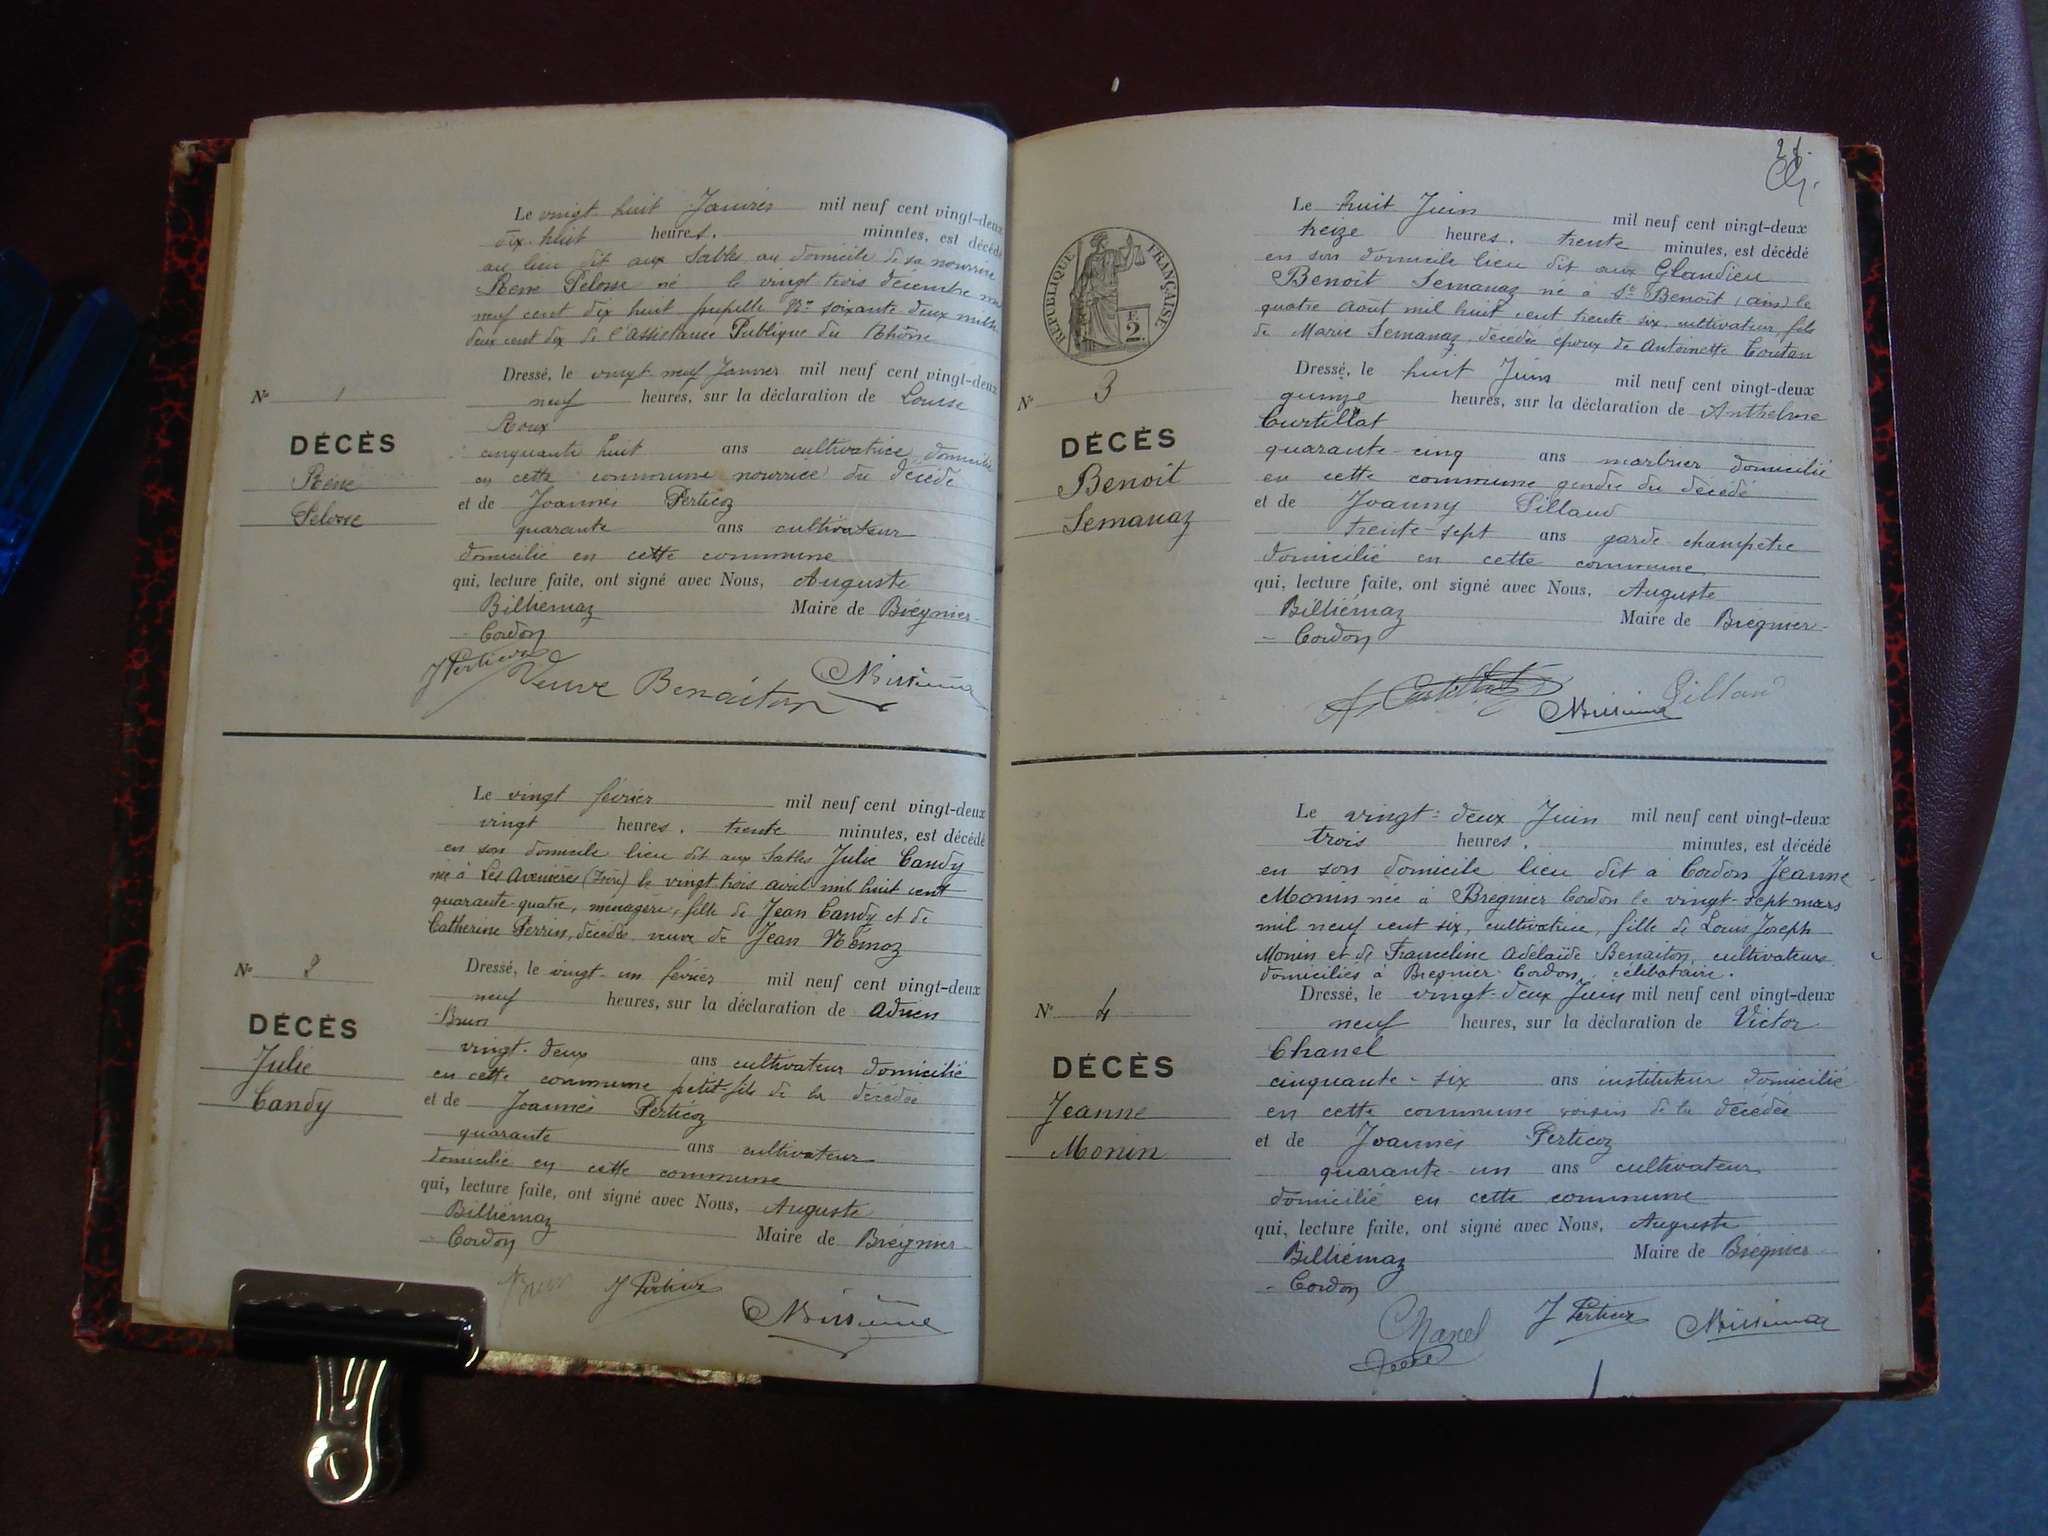 Le vingt huit Janvier mil neuf cent vingt-deux
dix huit heures. minutes, est décédé
au lieu dit aux Sables au domicile de sa nourrice
René Pelosse né le vingt trois décembre mil
neuf cent dix huit pupille No soixante deux mille
deux cent dix de l'Assistance Publique du Rhône
Dressé, le vingt neuf Janvier mil neuf cent vingt-deux
neuf heures, sur la déclaration de Louise
Roux
cinquante huit ans cultivatrice domicilié
en cette commune nourrice du décédé
et de Joannes Perticoz
quarante ans cultivateur
domicilié en cette commune
qui, lecture faite, ont signé avec Nous, Auguste
Billiémaz Maire de Brégnier-
- Cordon
No 1
DÉCÈS
René
Pelosse
J Perticoz Veuve Benaiton
Le vingt février mil neuf cent vingt-deux
vingt heures. trente minutes, est décédé
en son domicile lieu dit aux Sables Julie Candy
née à Les Avenières (Isère) le vingt trois avril mil huit cent
quarante-quatre, ménagère, fille de Jean Candy et de
Catherine Perrin, décédés, veuve de Jean Rémoz
Dressé, le vingt-un février mil neuf cent vingt-deux
neuf heures, sur la déclaration de Adrien
Brun
vingt-deux ans cultivateur domicilié
en cette commune petit fils de la décédée
et de Joannès Perticoz
quarante ans cultivateur
domicilié en cette commune
qui, lecture faite, ont signé avec Nous, Auguste
Billiémaz Maire de Brégnier-
- Cordon
No 2
DÉCÈS
Julie
Candy
Brun J Perticoz
RÉPUBLIQUE FRANÇAISE
F.
2.
Le huit Juin mil neuf cent vingt-deux
treize heures. trente minutes, est décédé
en son domicile lieu dit aux Glandieu
Benoît Semanaz né à St Benoît (ain) le
quatre août mil huit cent trente six cultivateur fils
de Marie Semanaz, décédée, époux de Antoinette Coutan
Dressé, le huit Juin mil neuf cent vingt-deux
quinze heures, sur la déclaration de Anthelme
Curtillat
quarante-cinq ans marbrier domicilié
en cette commune gendre du décédé
et de Joanny Pillaud
trente-sept ans garde-champêtre
domicilié en cette commune
qui, lecture faite, ont signé avec Nous, Auguste
Billiémaz Maire de Brégnier-
- Cordon
No 3
DÉCÈS
Benoît
Semanaz
A. Curtillat Pillaud
Le vingt-deux Juin mil neuf cent vingt-deux
trois heures. minutes, est décédé
en son domicile lieu dit à Cordon Jeanne
Monin née à Brégnier Cordon le vingt-sept mars
mil neuf cent six, cultivatrice, fille de Louis Joseph
Monin et de Franceline Adelaïde Benaiton, cultivateurs
domiciliés à Brégnier-Cordon, célibataire.
Dressé, le vingt-deux Juin mil neuf cent vingt-deux
neuf heures, sur la déclaration de Victor
Chanel
cinquante-six ans instituteur domicilié
en cette commune voisin de la décédée
et de Joannès Perticoz
quarante-un ans cultivateur
domicilié en cette commune
qui, lecture faite, ont signé avec Nous, Auguste
Billiémaz Maire de Brégnier
- Cordon
No 4
DÉCÈS
Jeanne
Monin
Chanel J Perticoz